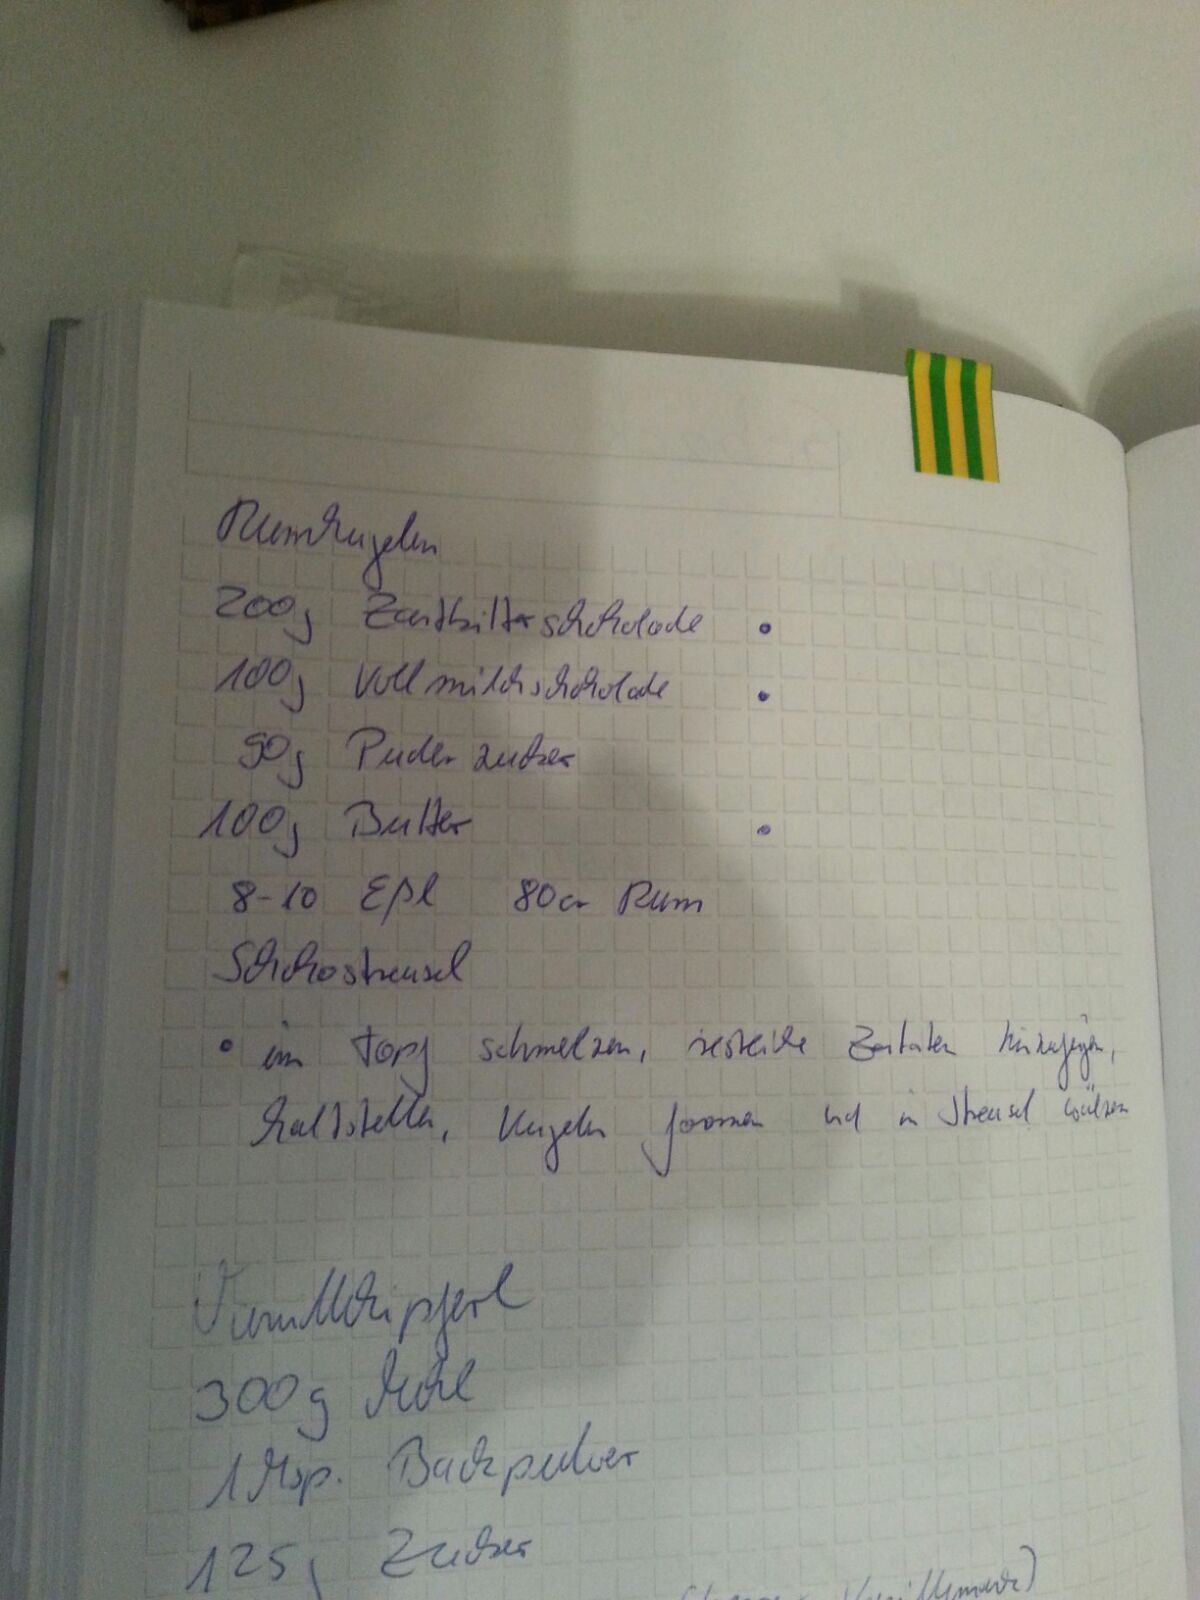 Rumkugeln
200g Zartbitterschokolade •
100g Vollmilchschokolade •
90g Puderzucker
100g Butter •
8-10 Eßl 80er Rum
Schokostreusel
• im Topf schmelzen, restliche Zutaten hinzufügen,
kaltstellen, Kugeln formen und in Streusel wälzen
Vanillekipferl
300g Mehl
1 Msp. Backpulver
125g Zucker
Vanillemark)